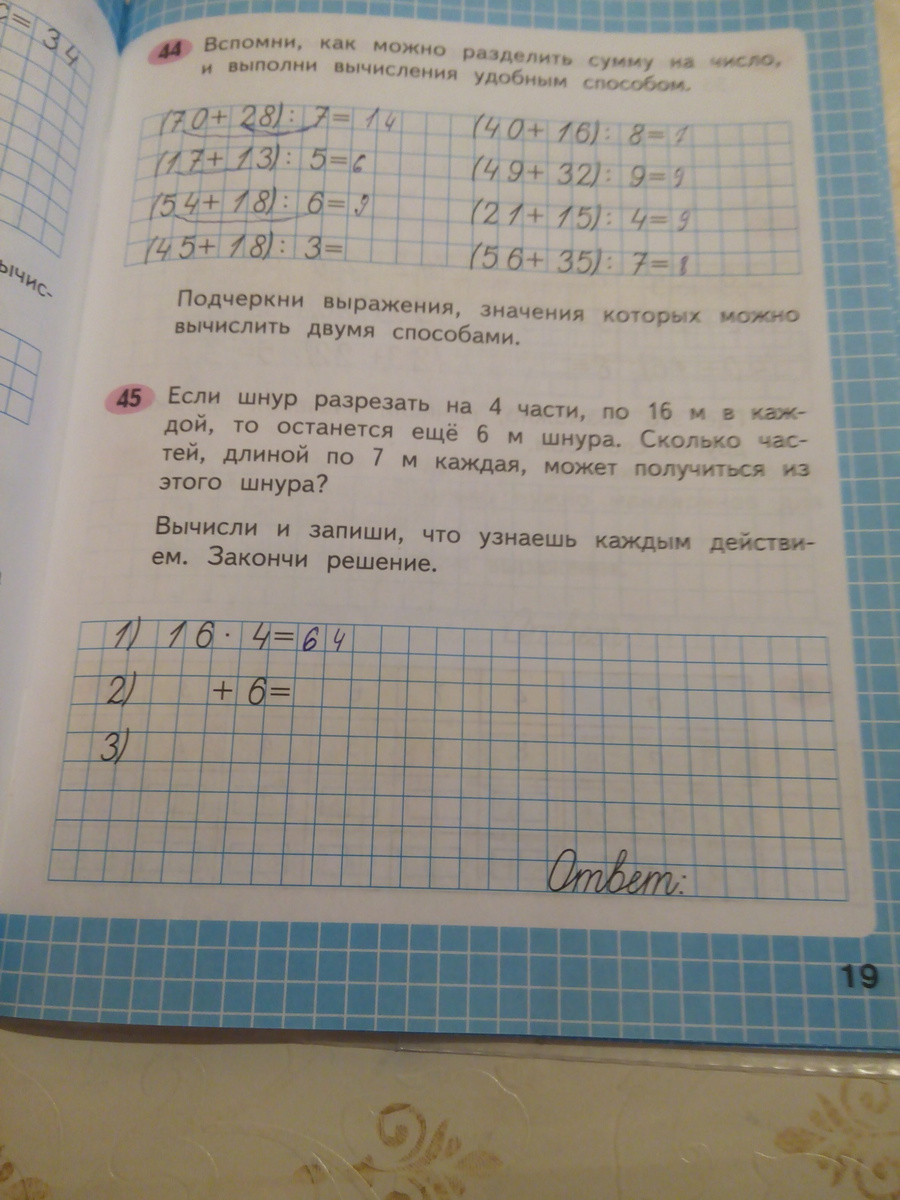 с= 34
44 Вспомни, как можно разделить сумму на число,
и выполни вычисления удобным способом.
(70+ 28): 7= 14
(17+ 13): 5= 6
(54+ 18): 6= 9
(45+ 18): 3=
(40+ 16): 8= 1
(49+ 32): 9= 9
(21+ 15): 4= 9
(56+ 35): 7= 8
ычис-
Подчеркни выражения, значения которых можно
вычислить двумя способами.
45 Если шнур разрезать на 4 части, по 16 м в каж-
дой, то останется ещё 6 м шнура. Сколько час-
тей, длиной по 7 м каждая, может получиться из
этого шнура?
Вычисли и запиши, что узнаешь каждым действи-
ем. Закончи решение.
1) 16· 4= 64
2) + 6=
3)
Ответ:
19